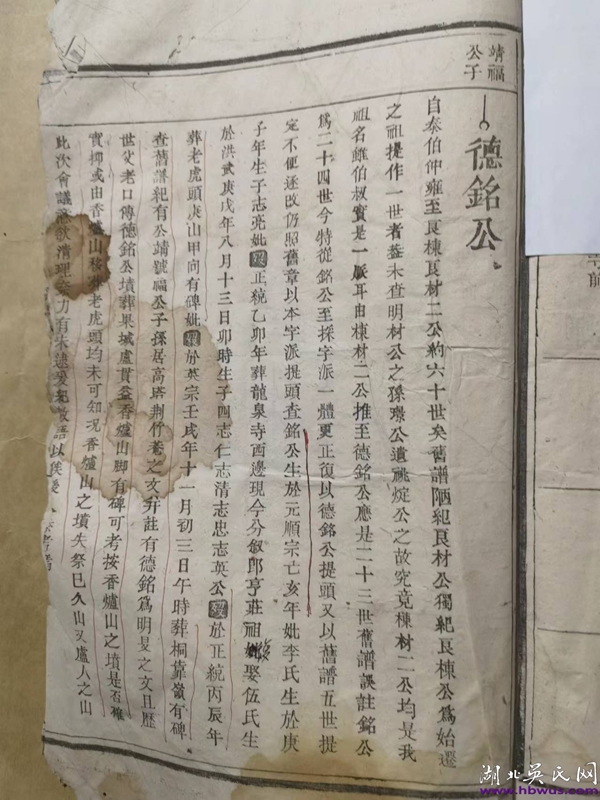 靖福
公子
德銘公
自泰伯仲雍至良棟良材二公約六十世矣舊譜陋紀良材公獨紀良棟公爲始遷
之祖提作一世者葢未查明材公之孫璟公遺祧公之故究竟棟材二公均是我
祖名雖伯叔實是一脈耳由棟材二公推至德銘公應是二十三世舊譜誤註銘公
爲二十四世今特從銘公至採字派一體更正復以德銘公提頭又以舊譜五世提
定不便遂改仍照舊章以本字派提頭查銘公生於元順宗亡亥年妣李氏生於庚
子年生子志亮妣歿正統乙卯年葬龍泉寺西邊現今分叙郎亨莊祖娶伍氏生
於洪武庚戌年八月十三日卯時生子四志仁志清志忠志英公歿於正統丙辰年
葬老虎頭庚山甲向有碑妣歿於英宗壬戌年十一月初三日午時葬桐靠嶺有碑
查舊譜紀有公靖號福公子孫居高塔荆竹菴之文并註有德銘爲明旻之文且歷
世父老口傳德銘公墳葬果城盧貫益香爐山脚有碑可考按香爐山之墳是否確
實抑或由香爐山移葬老虎頭均未可知况香爐山之墳失祭巳久山又盧人之山
此次會議欲清理力有未逮爰紀數語以俟後
湖北吴氏网
www.hbwus.com